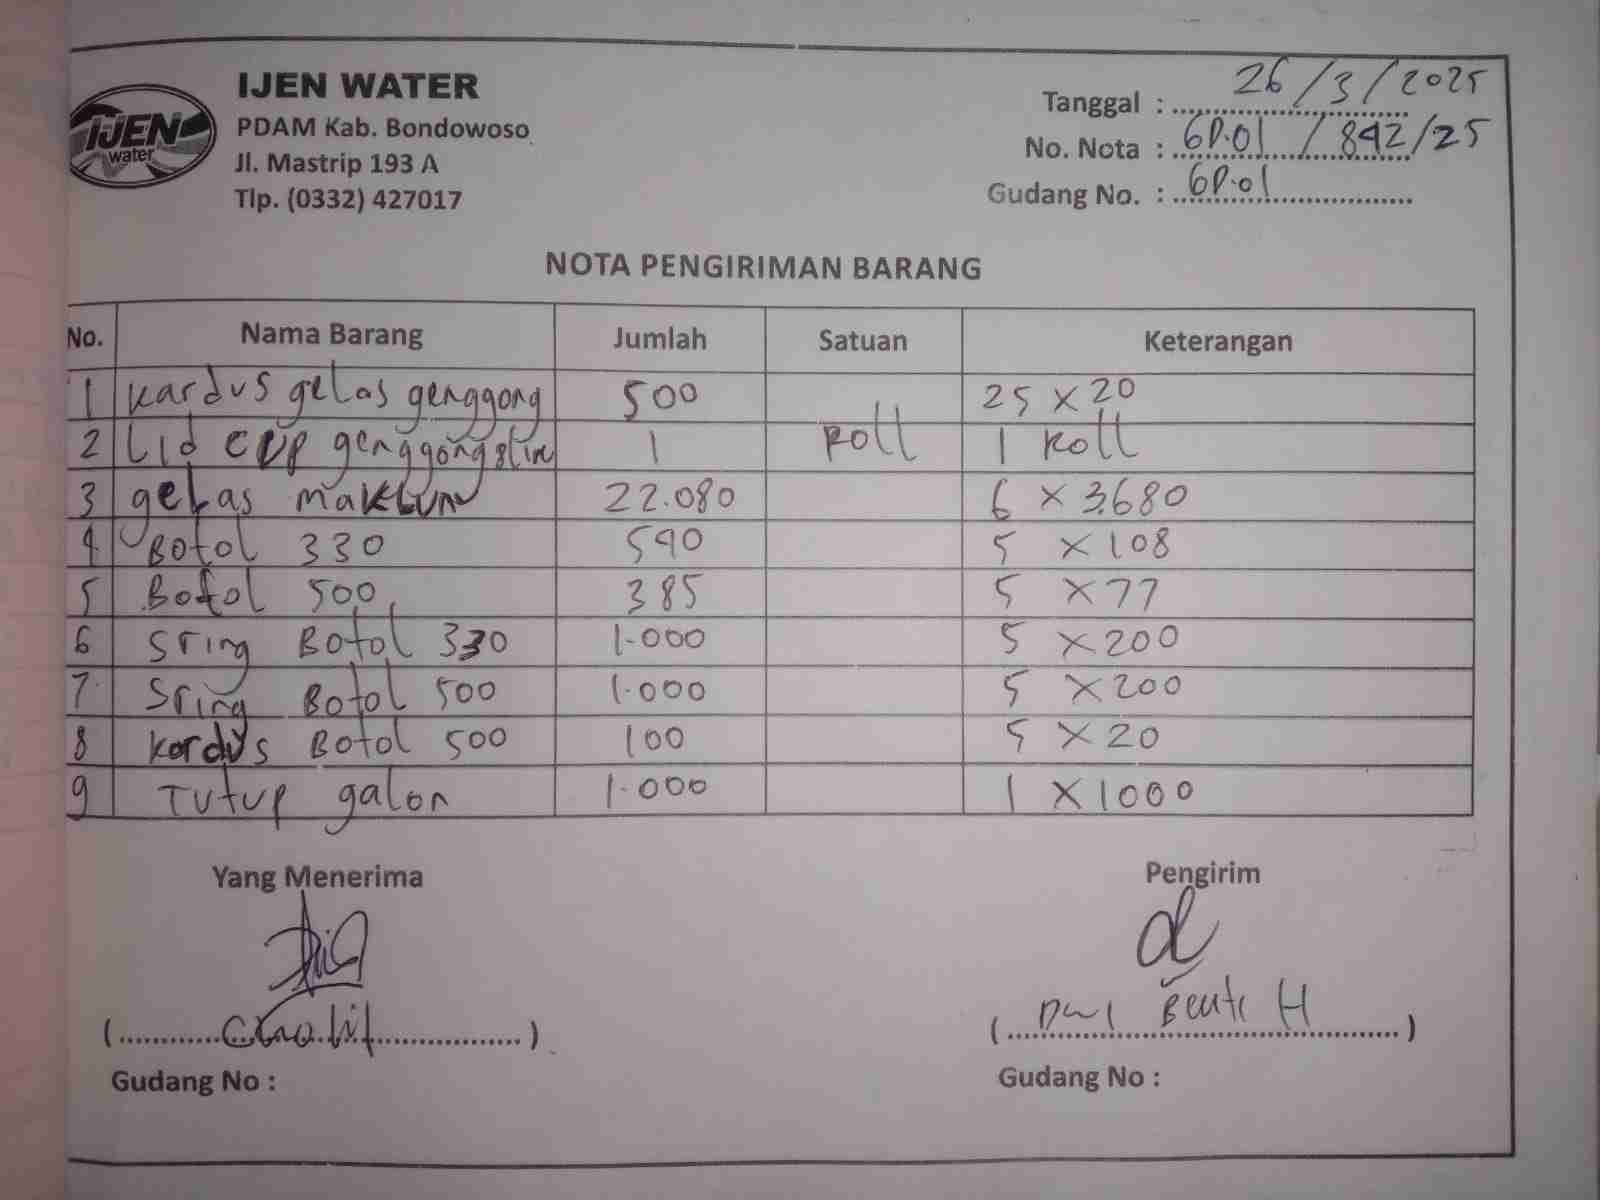 IJEN
water
IJEN WATER
PDAM Kab. Bondowoso
Jl. Mastrip 193 A
Tlp. (0332) 427017
Tanggal : 26/3/2025
No. Nota : GD.01 / 842/25
Gudang No. : GD.01
NOTA PENGIRIMAN BARANG
No. Nama Barang Jumlah Satuan Keterangan
1 Kardus gelas genggong 500 25 x 20
2 Lid cup genggong slim 1 Roll 1 Roll
3 gelas maklun 22.080 6 x 3.680
4 Botol 330 540 5 x 108
5 Botol 500 385 5 x 77
6 Sring Botol 330 1.000 5 x 200
7 Sring Botol 500 1.000 5 x 200
8 Kardus Botol 500 100 5 x 20
9 Tutup galon 1.000 1 x 1000
Yang Menerima Pengirim
( ) ( Dwi H )
Gudang No : Gudang No :